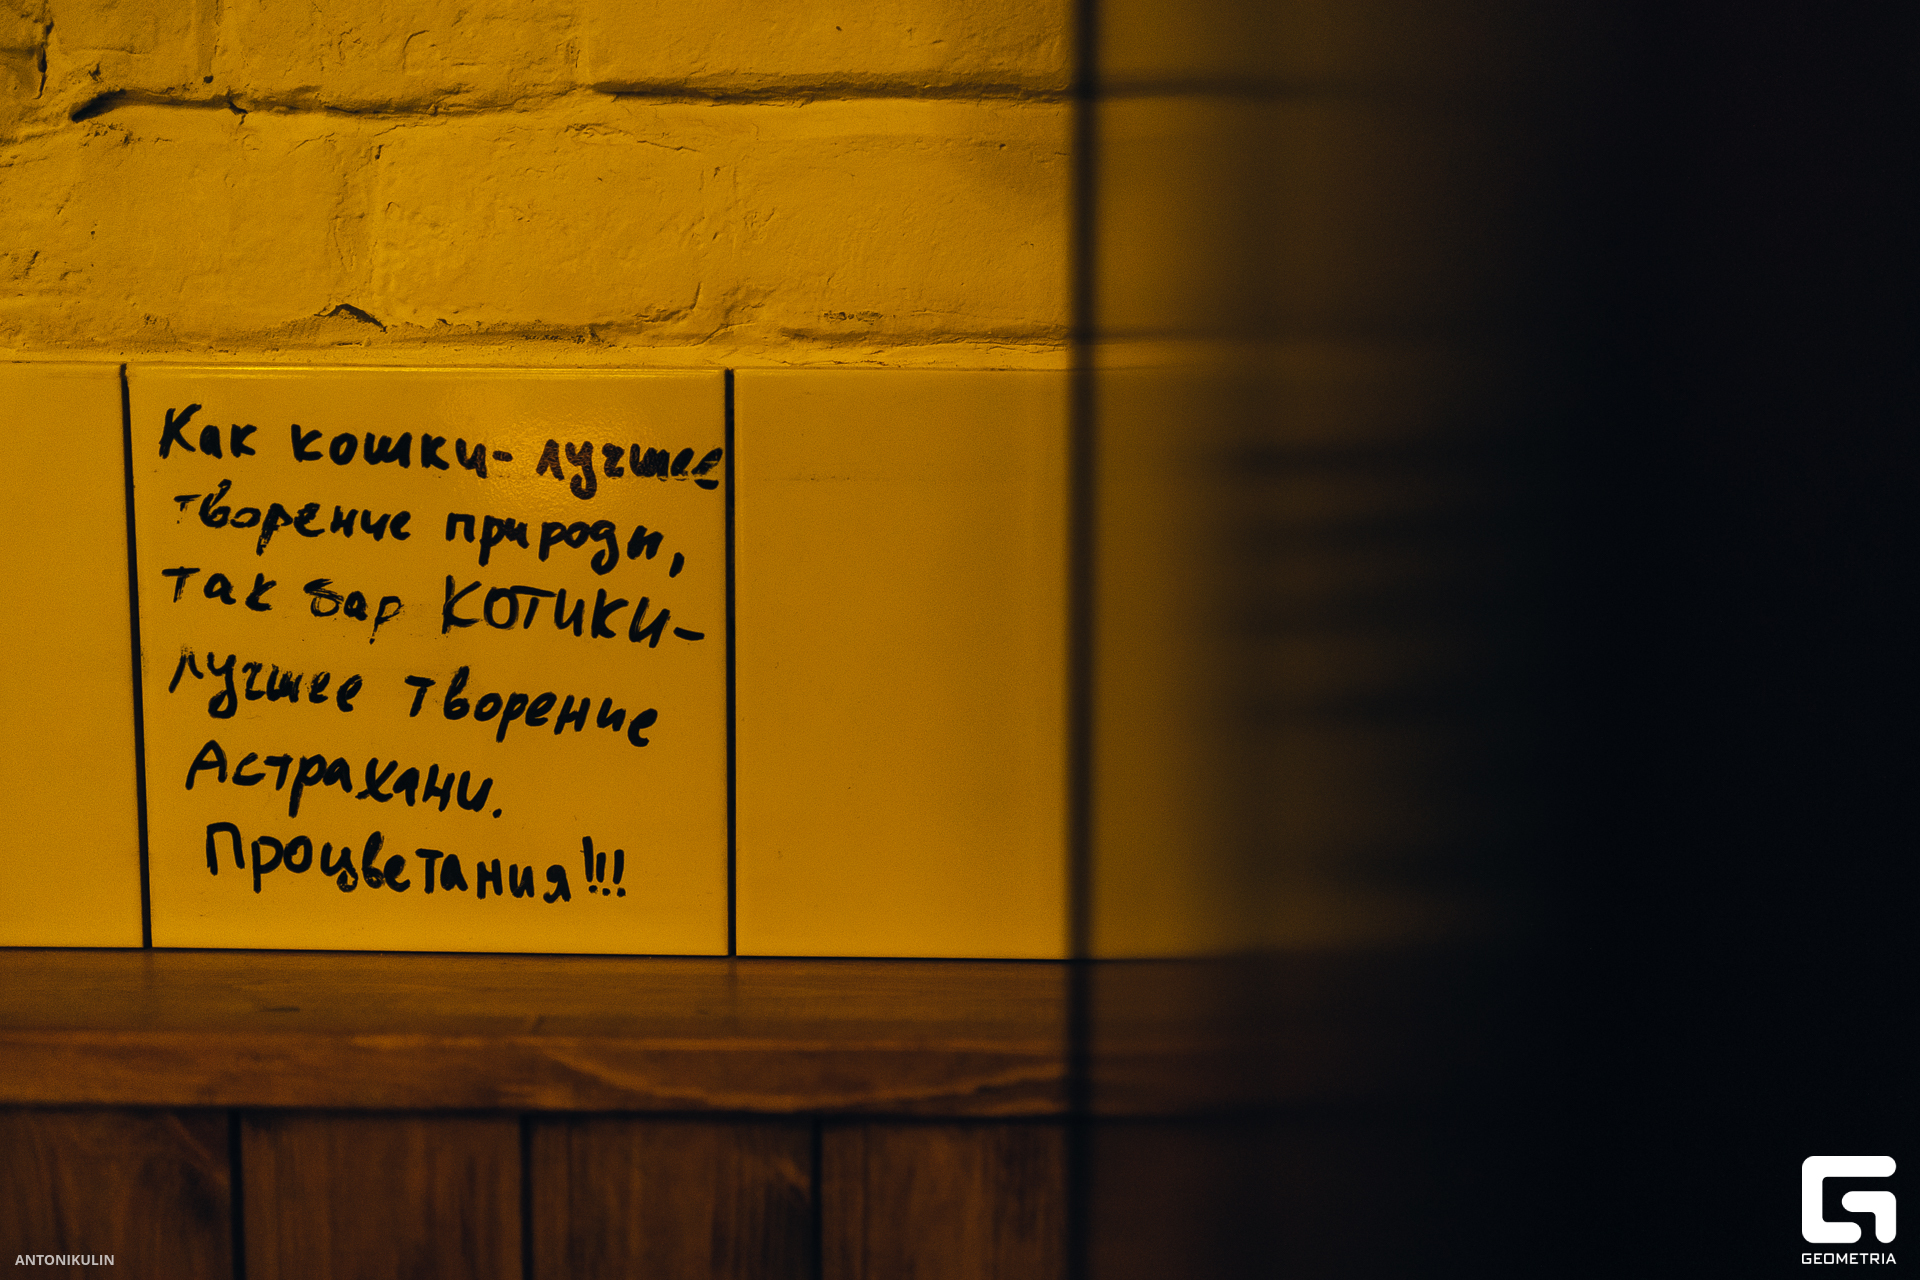 Как кошки- лучшее
творение природы,
так бар КОТИКИ-
лучшее творение
Астрахани.
Процветания!!!
ANTONIKULIN
GEOMETRIA